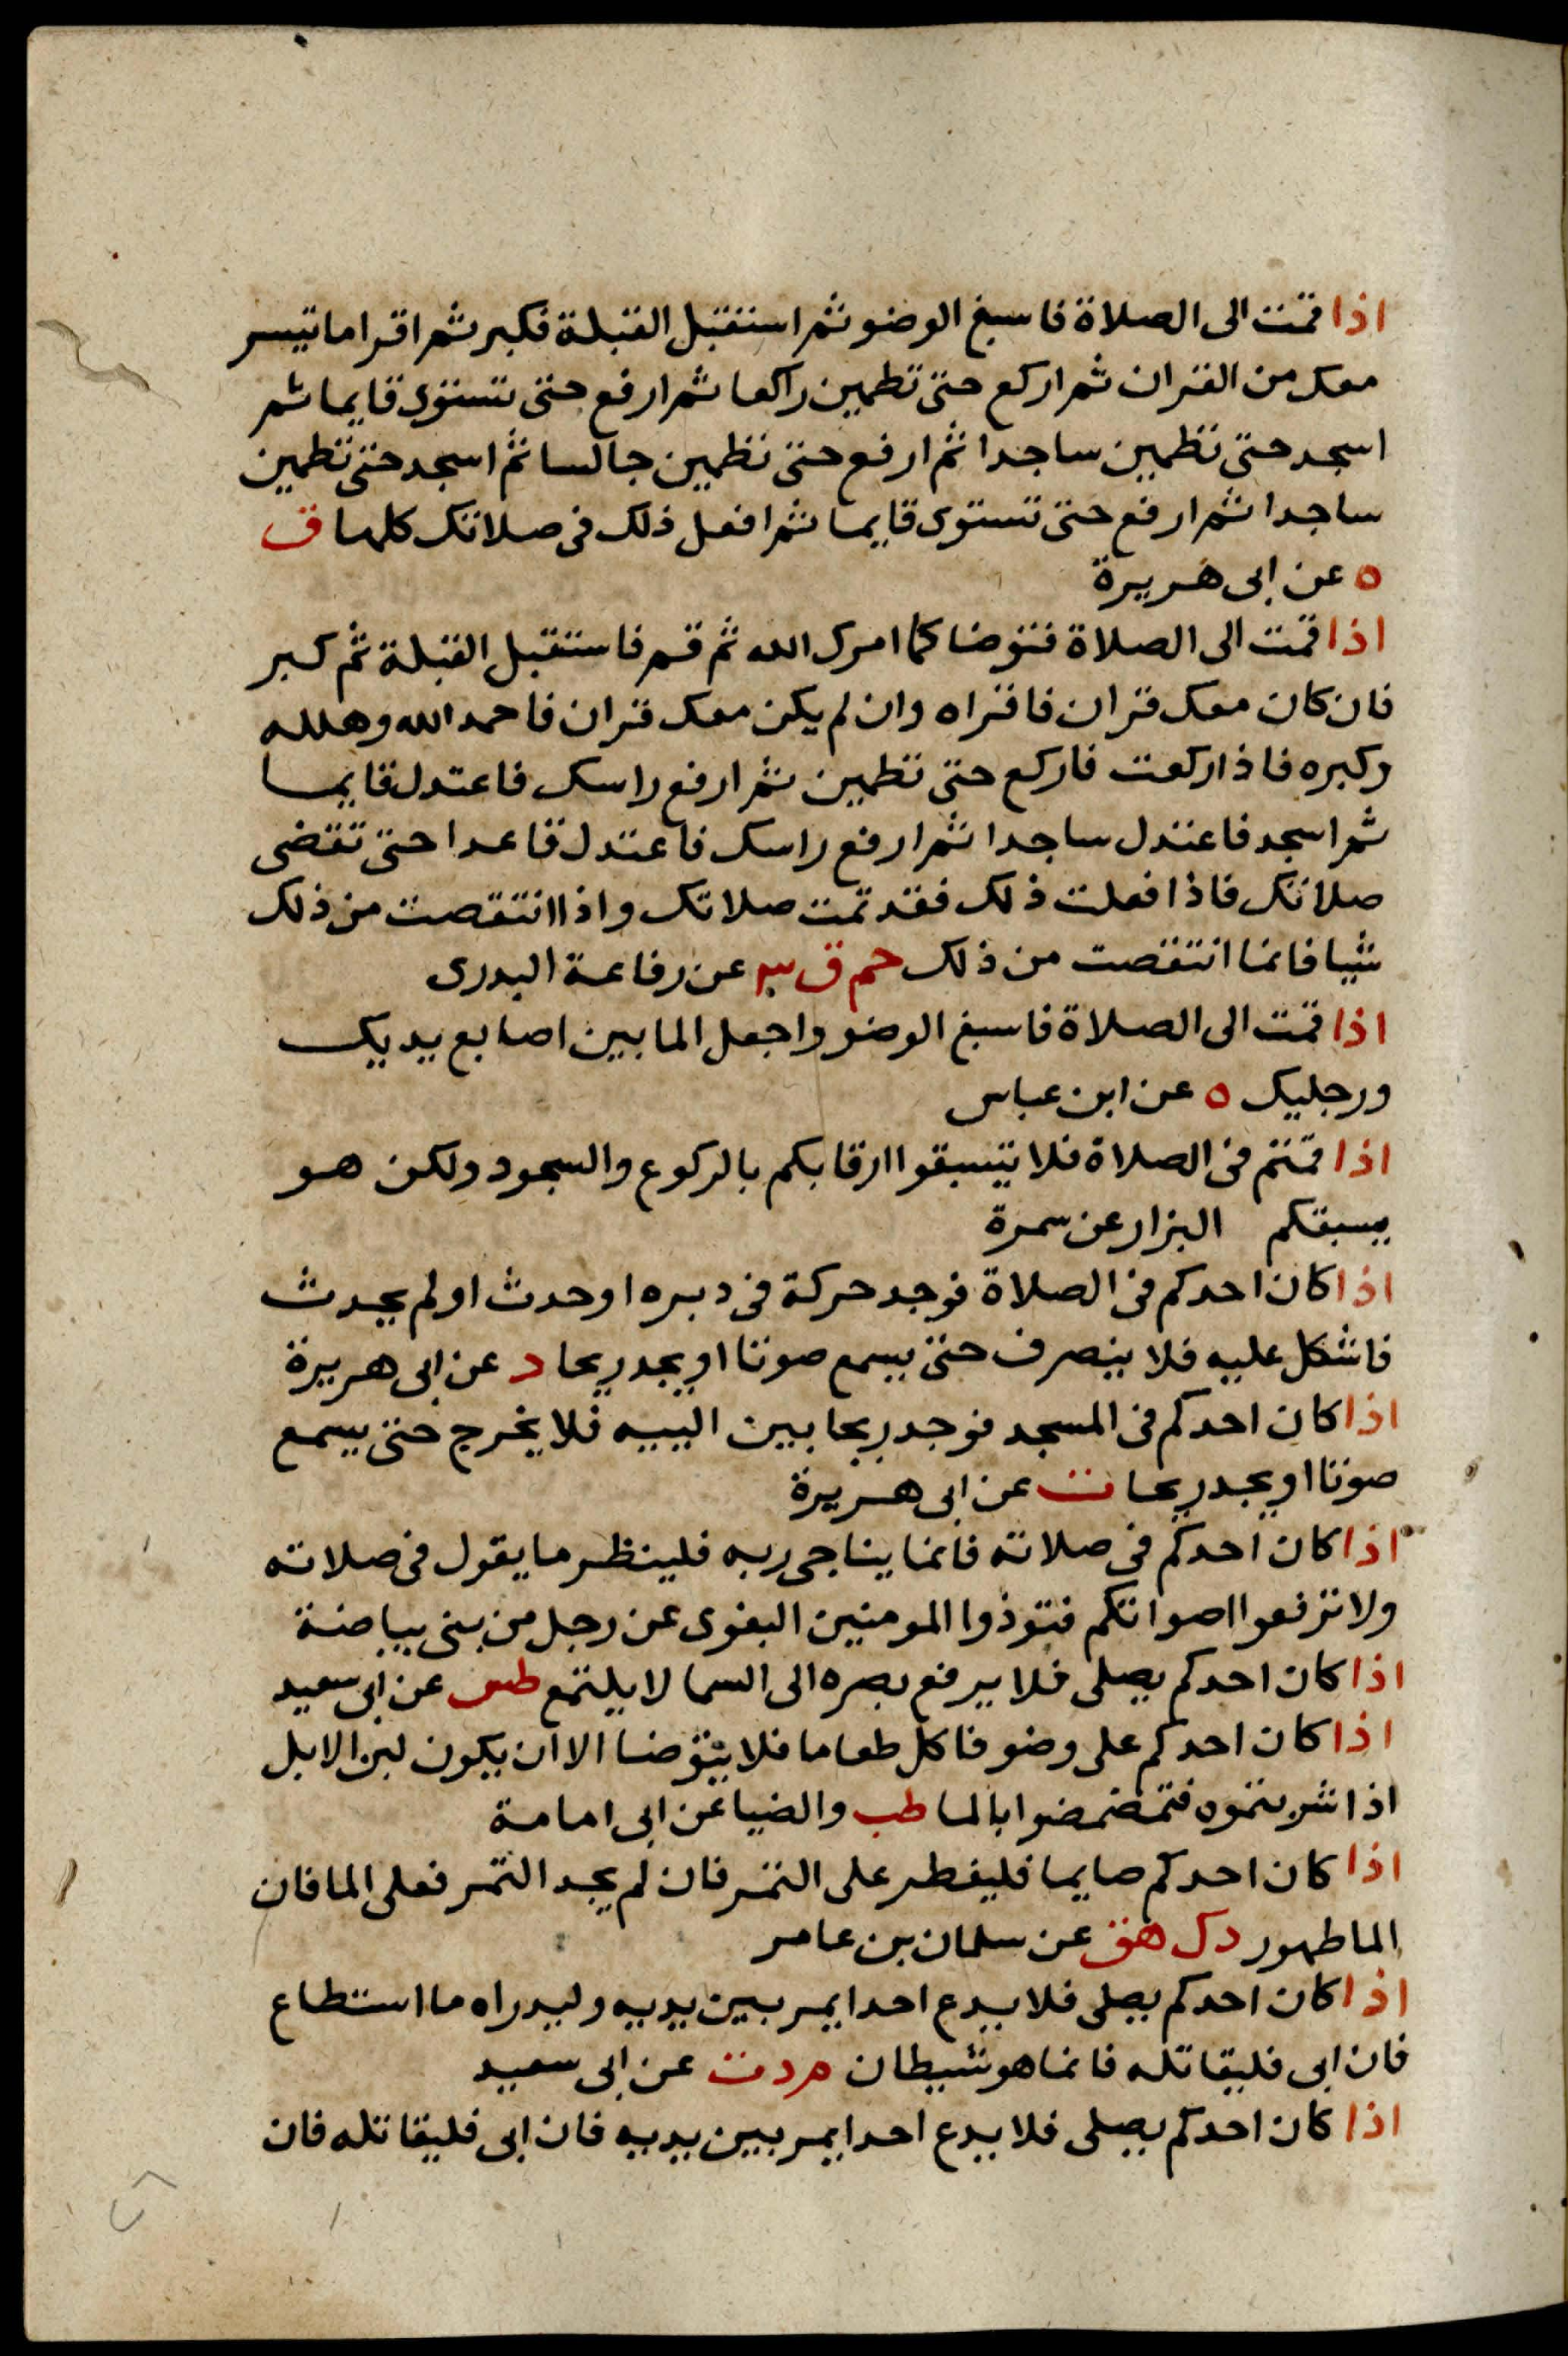 اذا قمت الى الصلاة فاسبغ الوضو ثم استقبل القبلة فكبر ثم اقرا ما تيسر
معك من القران ثم اركع حتى تطمين راكعا ثم ارفع حتى تستوى قايما ثم
اسجد حتى تطمين ساجدا ثم ارفع حتى تطمين جالسا ثم اسجد حتى تطمين
ساجدا ثم ارفع حتى تستوى قايما ثم افعل ذلك فى صلاتك كلها ق
ه عن ابى هريرة
اذا قمت الى الصلاة فتوضا كما امرك الله ثم قم فاستقبل القبلة ثم كبر
فان كان معك قران فاقراه وان لم يكن معك قران فاحمد الله وهلله
وكبره فاذا ركعت فاركع حتى تطمين ثم ارفع راسك فاعتدل قايما
ثم اسجد فاعتدل ساجدا ثم ارفع راسك فاعتدل قاعدا حتى تقضى
صلاتك فاذا فعلت ذلك فقد تمت صلاتك واذا انتقصت من ذلك
شيا فانما انتقصت من ذلك حم ق ٣ عن رفاعة البدرى
اذا قمت الى الصلاة فاسبغ الوضو واجعل الما بين اصابع يديك
ورجليك ه عن ابن عباس
اذا قمتم فى الصلاة فلا تسبقوا ارقابكم بالركوع والسجود ولكن هو
يسبقكم البزار عن سمرة
اذا كان احدكم فى الصلاة فوجد حركة فى دبره او حدث او لم يحدث
فاشكل عليه فلا ينصرف حتى يسمع صوتا او يجد ريحا د عن ابى هريرة
اذا كان احدكم فى المسجد فوجد ريحا بين اليبيه فلا يخرج حتى يسمع
صوتا او يجد ريحا ت عن ابى هريرة
اذا كان احدكم فى صلاته فانما يناجى ربه فلينظر ما يقول فى صلاته
ولا ترفعوا اصواتكم فتوذوا المومنين البغوى عن رجل من بنى بياضة
اذا كان احدكم يصلى فلا يرفع بصره الى السما لا يلتمع طس عن ابى سعيد
اذا كان احدكم على وضو فاكل طعاما فلا يتوضا الا ان يكون لبن الابل
اذا شربتموه فتمضمضوا بالما طب والضيا عن ابى امامة
اذا كان احدكم صايما فليفطر على التمر فان لم يجد التمر فعلى الما فان
الما طهور د ك هق عن سلمان بن عامر
اذا كان احدكم يصلى فلا يدع احدا يمر بين يديه وليدراه ما استطاع
فان ابى فليقاتله فانما هو شيطان م د ت عن ابى سعيد
اذا كان احدكم يصلى فلا يدع احدا يمر بين يديه فان ابى فليقاتله فان